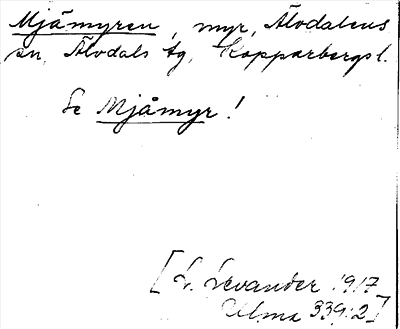 Mjåmyren, myr, Älvdalens
sn, Älvdals tg, Kopparbergs l.
Se Mjåmyr!
[L. Levander 1917
Ulma 339:2]